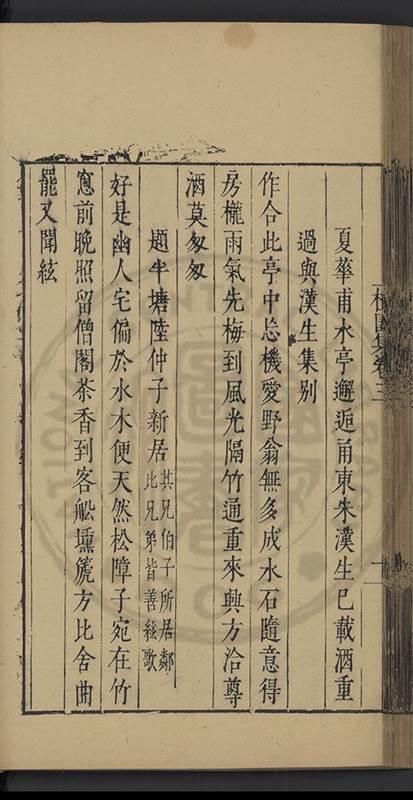 夏華甫水亭邂逅甬東朱漢生已載酒重
過與漢生集別
作合此亭中忘機愛野翁無多成水石隨意得
房櫳雨氣先梅到風光隔竹通重來興方洽尊
酒莫匆匆
題半塘陸仲子新居其兄伯子所居鄰
比兄弟皆善絃歌
好是幽人宅偏於水木便天然松障子宛在竹
窻前晚照留僧閣茶香到客船壎篪方比舍曲
罷又聞絃
集卷三
十一